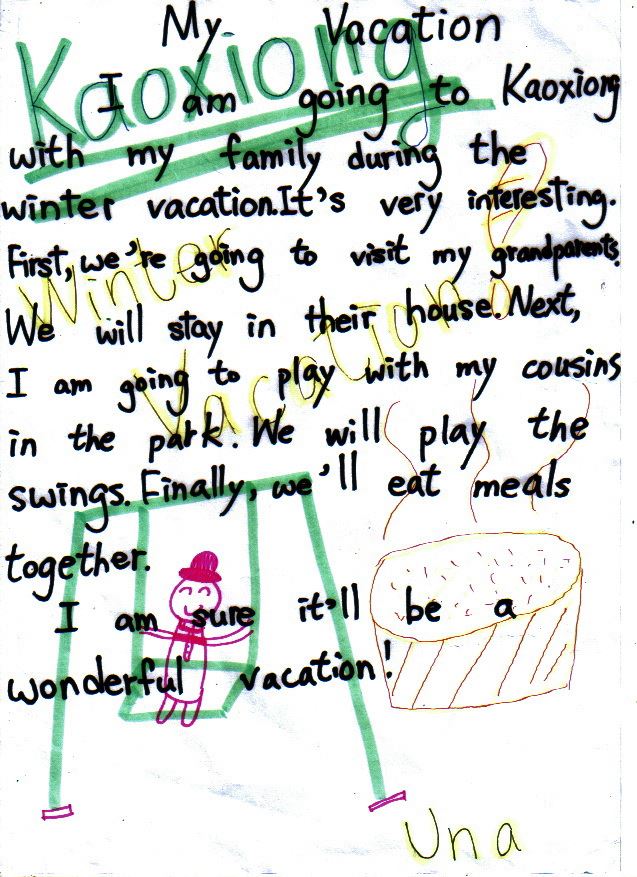 My Vacation
Kaoxiong
I am going to Kaoxiong
with my family during the
winter vacation.It's very interesting.
First, we're going to visit my grandparents.
We will stay in their house. Next,
I am going to play with my cousins
in the park. We will play the
swings. Finally, we'll eat meals
together.
I am sure it'll be a
wonderful vacation!
Winter
Vacation!
Una